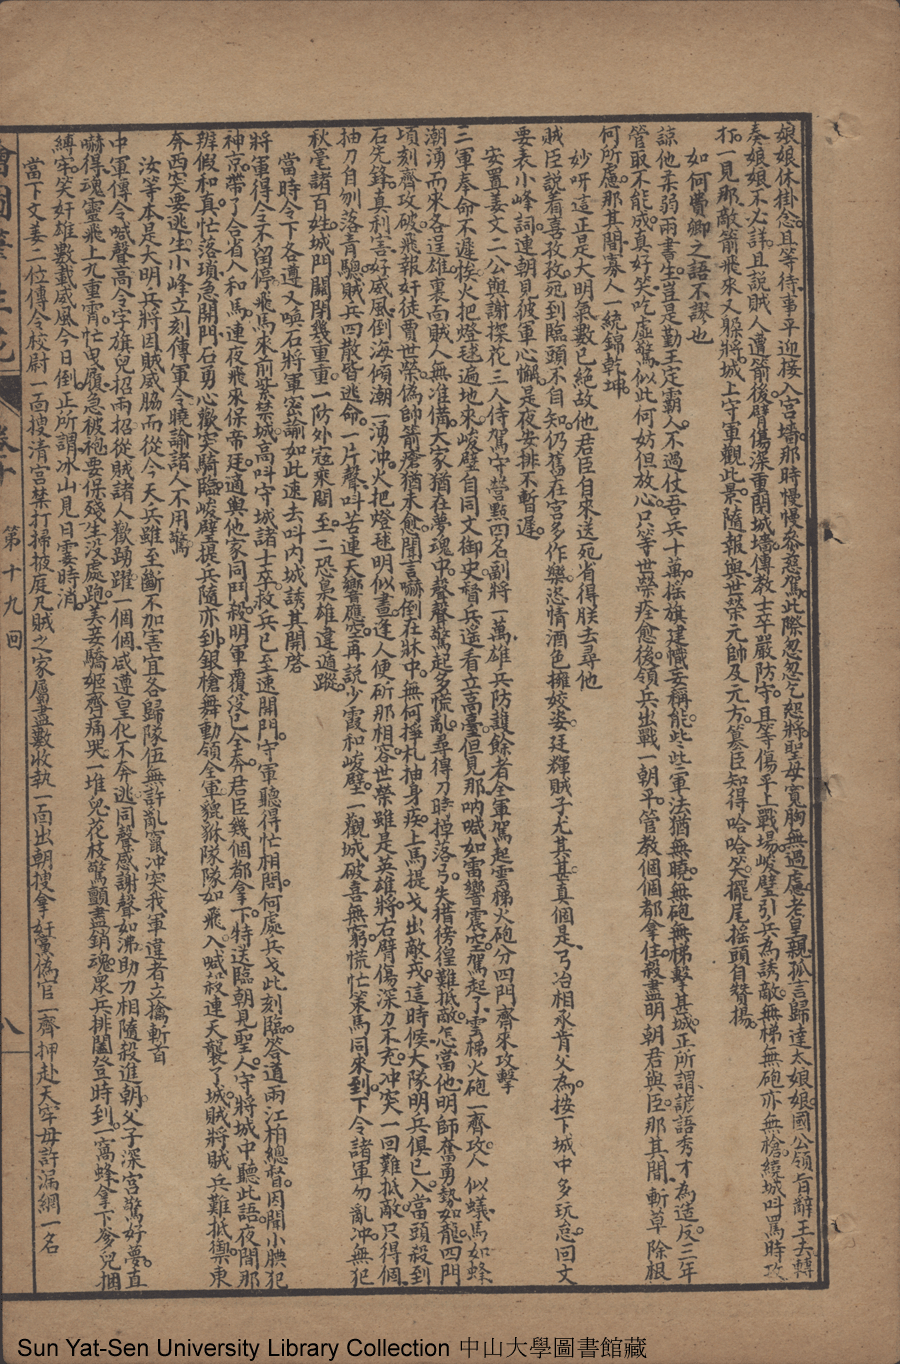 娘娘休掛念且等待事平迎接入宮墻那時慢慢參慈駕此際忽忽乞恕將聖母寬胸無過慮老皇親孤言歸達太娘娘國公領旨辭王去轉
奏娘娘不必詳且說賊人遭箭後臂傷深重閉城墻傳教士卒嚴防守且等傷平上戰場峻壁引兵為誘敵無梯無砲亦無槍繞城叫罵時攻
打一見那敵箭飛來又躲將城上守軍觀此景隨報與世榮元帥及元方篡臣知得哈哈笑擺尾搖頭自贊揚
如何費卿之語不謬也
諒他柔弱兩書生豈是勤王定霸人不過仗吾兵十萬搖旗建幟妄稱能些些軍法猶無曉無砲無梯擊甚城正所謂諺語秀才為造反三年
管取不能成真好笑吃虛驚似此何妨但放心只等世榮痊愈後領兵出戰一朝平管教個個都拿住殺盡明朝君與臣那其間斬草除根
何所慮那其間寡人一統錦乾坤
妙呀這正是大明氣數已絕故他君臣自來送死省得朕去尋他
賊臣說着喜孜孜死到臨頭不自知仍舊在宮多作樂恣情酒色擁姣姿廷輝賊子尤其甚真個是弓冶相承肖父為按下城中多玩怠回文
要表小峰詞連朝見彼軍心懈是夜安排不暫遲
安置姜文二公與謝探花三人侍駕守營點四名副將一萬雄兵防護餘者全軍駕起雲梯火砲分四門齊來攻擊
三軍奉命不遲挨火把燈毬遍地來峻壁自同文御史督兵遥看立高臺但見那吶喊如雷響震空駕起了雲梯火砲一齊攻人似蟻馬如蜂
潮湧而來各逞雄裏面賊人無准備大家猶在夢魂中聲聲驚起多慌亂尋得刀時掉落弓失措徬徨難抵敵怎當他明師奮勇勢如龍四門
頃刻齊攻破飛報奸徒賈世榮偽帥箭瘡猶未愈聞言嚇倒在牀中無何掙札抽身疾上馬提戈出敵戎這時候大隊明兵俱已入當頭殺到
石先鋒真利害好威風倒海傾潮一湧冲火把燈毬明似晝逢人便斫那相容世榮雖是英雄將右臂傷深力不充冲突一回難抵敵只得個
抽刀自刎落青驄賊兵四散皆逃命一片聲叫苦連天響應空再說少霞和峻壁一觀城破喜無窮慌忙策馬同來到下令諸軍勿亂冲無犯
秋毫諸百姓城門關閉幾重重一防外寇乘間至二恐梟雄違遁蹤
當時令下各遵又喚石將軍密諭如此速去叫內城誘其開啓
將軍得令不留停飛馬來前紫禁城高叫守城諸士卒救兵已至速開門守軍聽得忙相問何處兵戈此刻臨答道兩江柏總督因聞小腆犯
神京帶了合省人和馬連夜飛來保帝廷適與他家同鬥殺明軍覆沒已全奔君臣幾個都拿下特送臨朝見聖人守將城中聽此語夜間那
辨假和真忙落瑣急開門石勇心歡突騎臨峻壁提兵隨亦到銀槍舞動領全軍貔貅隊隊如飛入喊殺連天襲了城賊將賊兵難抵禦東
奔西突要逃生小峰立刻傳軍令曉諭諸人不用驚
汝等本是大明兵將因賊威脇而從今天兵雖至斷不加害宜各歸隊伍無許亂竄冲突我軍違者立擒斬首
中軍傳令喊聲高令字旗兒招兩招從賊諸人歡踴躍一個個咸遵皇化不奔逃同聲感謝聲如沸助力相隨殺進朝父子深宮驚好夢直
嚇得魂靈飛上九重霄忙曳履急披袍要保殘生沒處跑美妾驕姬齊痛哭一堆兒花枝驚顫盡銷魂眾兵排闥登時到一窩蜂拿下爹兒捆
縛牢笑奸雄數載威風今日倒正所謂冰山見日霎時消
當下文姜二位傳令校尉一面搜清宮禁打掃掖庭凡賊之家屬盡數收執一面出朝搜拿奸黨偽官一齊押赴天牢毋許漏網一名
第十九回
八
Sun Yat-Sen University Library Collection 中山大學圖書館藏